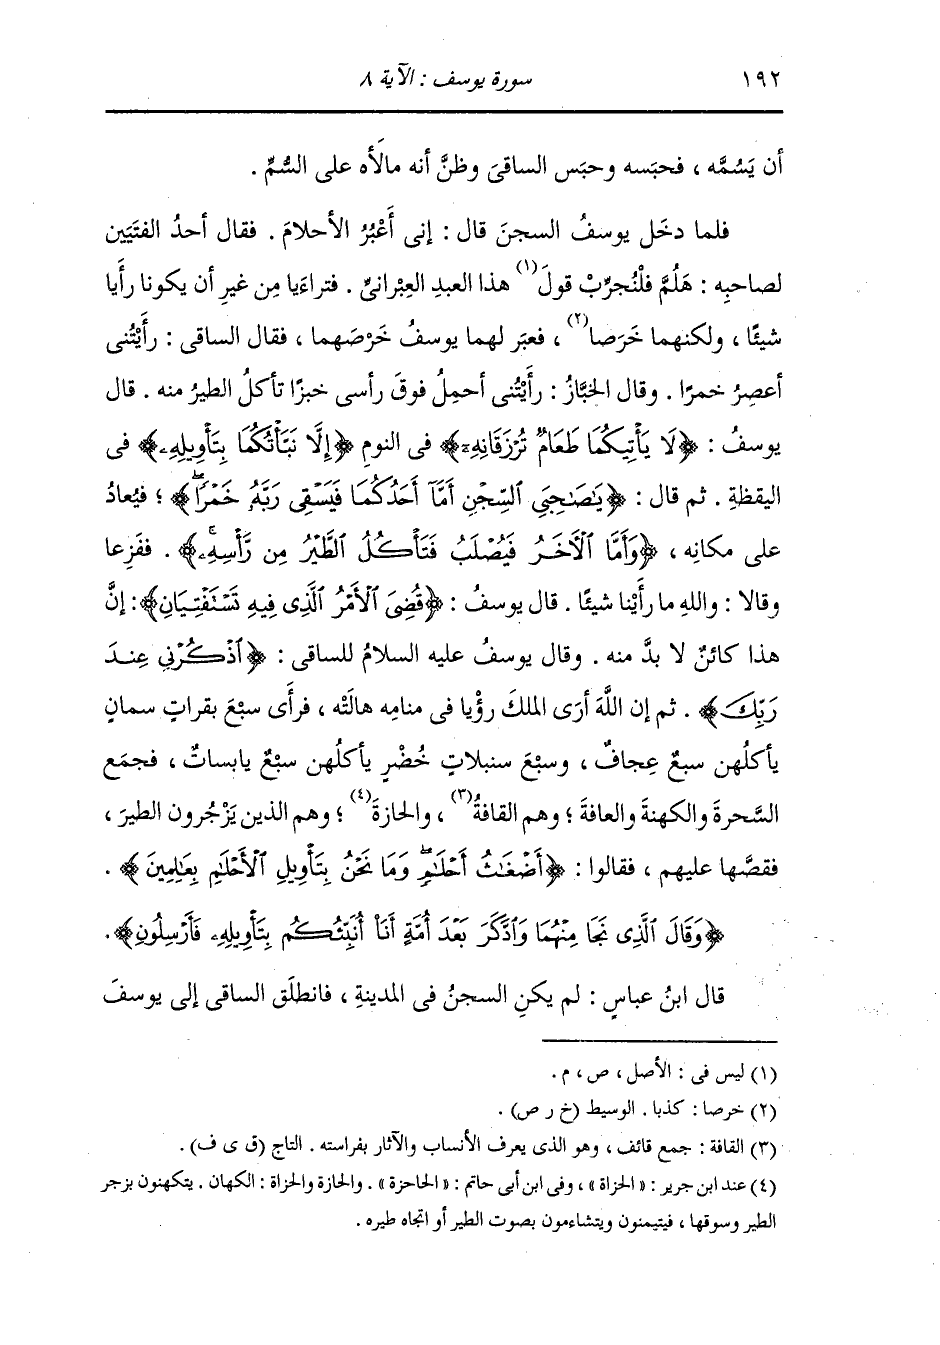 ١٩٢ سورة يوسف : الآية ٨
أن يَسُمَّه ، فحبَسه وحبَس الساقىَ وظنَّ أنه مالَأه على السُّمِّ .
فلما دخَل يوسفُ السجنَ قال : إنى أَعْبُرُ الأحلامَ . فقال أحدُ الفتَيَين
لصاحبِه : هَلُمَّ فلْنُجرِّبْ قولَ(١) هذا العبدِ العِبْرانىِّ . فتراءَيا مِن غيرِ أن يكونا رأَيا
شيئًا ، ولكنهما خَرَصا(٢) ، فعبَر لهما يوسفُ خَرْصَهما ، فقال الساقى : رأَيْتُنى
أعصِرُ خمرًا . وقال الخبَّازُ : رأَيْتُنى أحمِلُ فوقَ رأسى خبزًا تأكلُ الطيرُ منه . قال
يوسفُ : ﴿لَا يَأْتِيكُمَا طَعَامٌ تُرْزَقَانِهِۦٓ﴾ فى النومِ ﴿إِلَّا نَبَّأْتُكُمَا بِتَأْوِيلِهِۦ﴾ فى
اليقظةِ . ثم قال : ﴿يَٰصَٰحِبَىِ ٱلسِّجْنِ أَمَّآ أَحَدُكُمَا فَيَسْقِى رَبَّهُۥ خَمْرًاۖ﴾ ؛ فيُعادُ
على مكانِه ، ﴿وَأَمَّا ٱلْآخَرُ فَيُصْلَبُ فَتَأْكُلُ ٱلطَّيْرُ مِن رَّأْسِهِۦۚ﴾ . ففَزِعا
وقالا : واللهِ ما رأَيْنا شيئًا . قال يوسفُ : ﴿قُضِىَ ٱلْأَمْرُ ٱلَّذِى فِيهِ تَسْتَفْتِيَانِ﴾: إنَّ
هذا كائنٌ لا بدَّ منه . وقال يوسفُ عليه السلامُ للساقى : ﴿ٱذْكُرْنِى عِندَ
رَبِّكَ﴾ . ثم إن اللَّهَ أرَى الملكَ رؤْيا فى منامِه هالَتْه ، فرأَى سبْعَ بقراتٍ سمانٍ
يأكلُهن سبعٌ عِجافٌ ، وسبْعَ سنبلاتٍ خُضْرٍ يأكلُهن سبْعٌ يابساتٌ ، فجمَع
السَّحرةَ والكهنةَ والعافةَ ؛ وهم القافةُ(٣) ، والحازةَ(٤) ؛ وهم الذين يَزْجُرون الطيرَ ،
فقصَّها عليهم ، فقالوا : ﴿أَضْغَٰثُ أَحْلَٰمٍۖ وَمَا نَحْنُ بِتَأْوِيلِ ٱلْأَحْلَٰمِ بِعَٰلِمِينَ﴾ .
﴿وَقَالَ ٱلَّذِى نَجَا مِنْهُمَا وَٱدَّكَرَ بَعْدَ أُمَّةٍ أَنَا۠ أُنَبِّئُكُم بِتَأْوِيلِهِۦ فَأَرْسِلُونِ﴾.
قال ابنُ عباسٍ : لم يكنِ السجنُ فى المدينةِ ، فانطلَق الساقى إلى يوسفَ
(١) ليس فى : الأصل ، ص ، م .
(٢) خرصا : كذبا . الوسيط (خ ر ص) .
(٣) القافة : جمع قائف ، وهو الذى يعرف الأنساب والآثار بفراسته . التاج (ق ى ف) .
(٤) عند ابن جرير : « الحزاة » ، وفى ابن أبى حاتم : « الحاحزة » . والحازة والحزاة : الكهان . يتكهنون بزجر
الطير وسوقها ، فيتيمنون ويتشاءمون بصوت الطير أو اتجاه طيره .